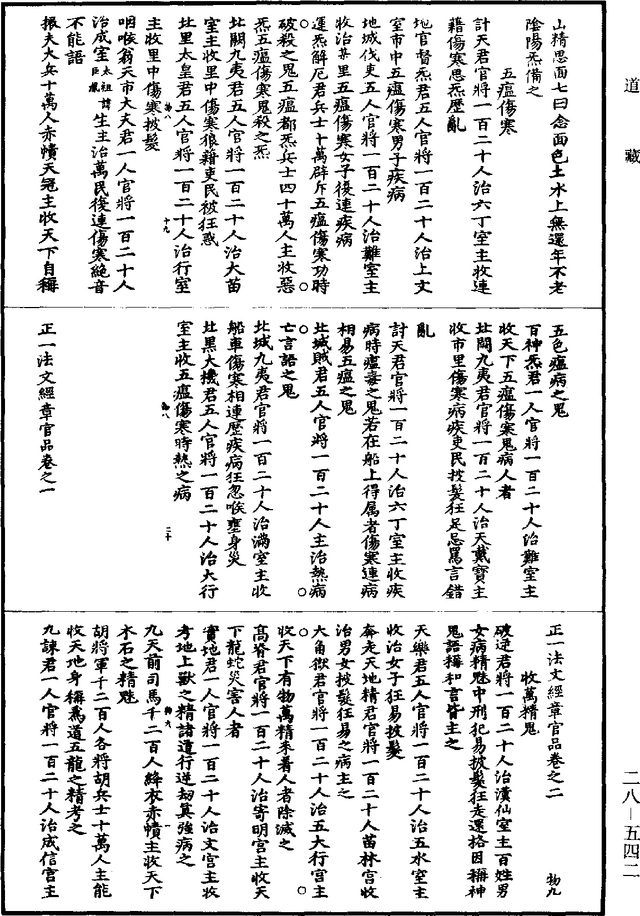 道藏
山精思面七曰念面色土水上無還年不老
陰陽炁備之
五瘟傷寒
計天君官將一百二十人治六丁室主收連
藉傷寒思炁歷亂
地官督炁君五人官將一百二十人治上文
室市中五瘟傷寒男子疾病
地城伐吏五人官將一百二十人治難室主
收治某里五瘟傷寒女子復連疾病
運炁解厄君兵士十萬辟斥五瘟傷寒功時
破殺之鬼五瘟都炁兵士四十萬人主收惡
炁五瘟傷寒鬼殺之炁
北闕九夷君五人官將一百二十人治大苗
室主收里中傷寒狼藉吏民被狂惑
北里太皇君五人官將一百二十人治行室
主收里中傷寒披髮
咽喉翁天市大夫君一人官將一百二十人
治成室太祖諱巨靈生主治萬民復連傷寒絕音
不能語
振夫大兵十萬人赤幘天冠主收天下自稱
五色瘟病之鬼
百神炁君一人官將一百二十人治難室主
收天下五瘟傷寒鬼病人者
北闕九夷君官將一百二十人治天戴寶主
收市里傷寒病疾吏民披髮狂足忌罵言錯
亂
討天君官將一百二十人治六丁室主收疾
病時瘟毒之鬼若在船上得屬者傷寒連病
相易五瘟之鬼
北城賊君五人官將一百二十人主治熱病
亡言語之鬼
北城九夷君官將一百二十人治滿室主收
船車傷寒相連歷疾病狂忽喉壅身災
北黑大機君五人官將一百二十人治大行
室主收五瘟傷寒時熱之病
正一法文經章官品卷之一
正一法文經章官品卷之二
物九
收萬精鬼
破逆君將一百二十人治濆仙室主百姓男
女病精魅中刑犯易披髮狂走還格因稱神
鬼語稱和言皆主之
天樂君五人官將一百二十人治五水室主
收治女子狂易披髮
奔走天地精君官將一百二十人苗林宮收
治男女披髮狂易之病主之
大角獄君官將一百二十人治五大行宮主
收天下有物萬精來著人者除滅之
高脊君官將一百二十人治寄明宮主收天
下龍蛇災害人者
實地君一人官將一百二十人治文宮主收
考地上獸之精諸道行逆劫莫強病之
九天前司馬千二百人絳衣赤幘主收天下
木石之精魅
胡將軍千二百人各將胡兵士十萬人主能
收天地身稱為道五龍之精考之
九諫君一人官將一百二十人治成信宮主
二八－五四二